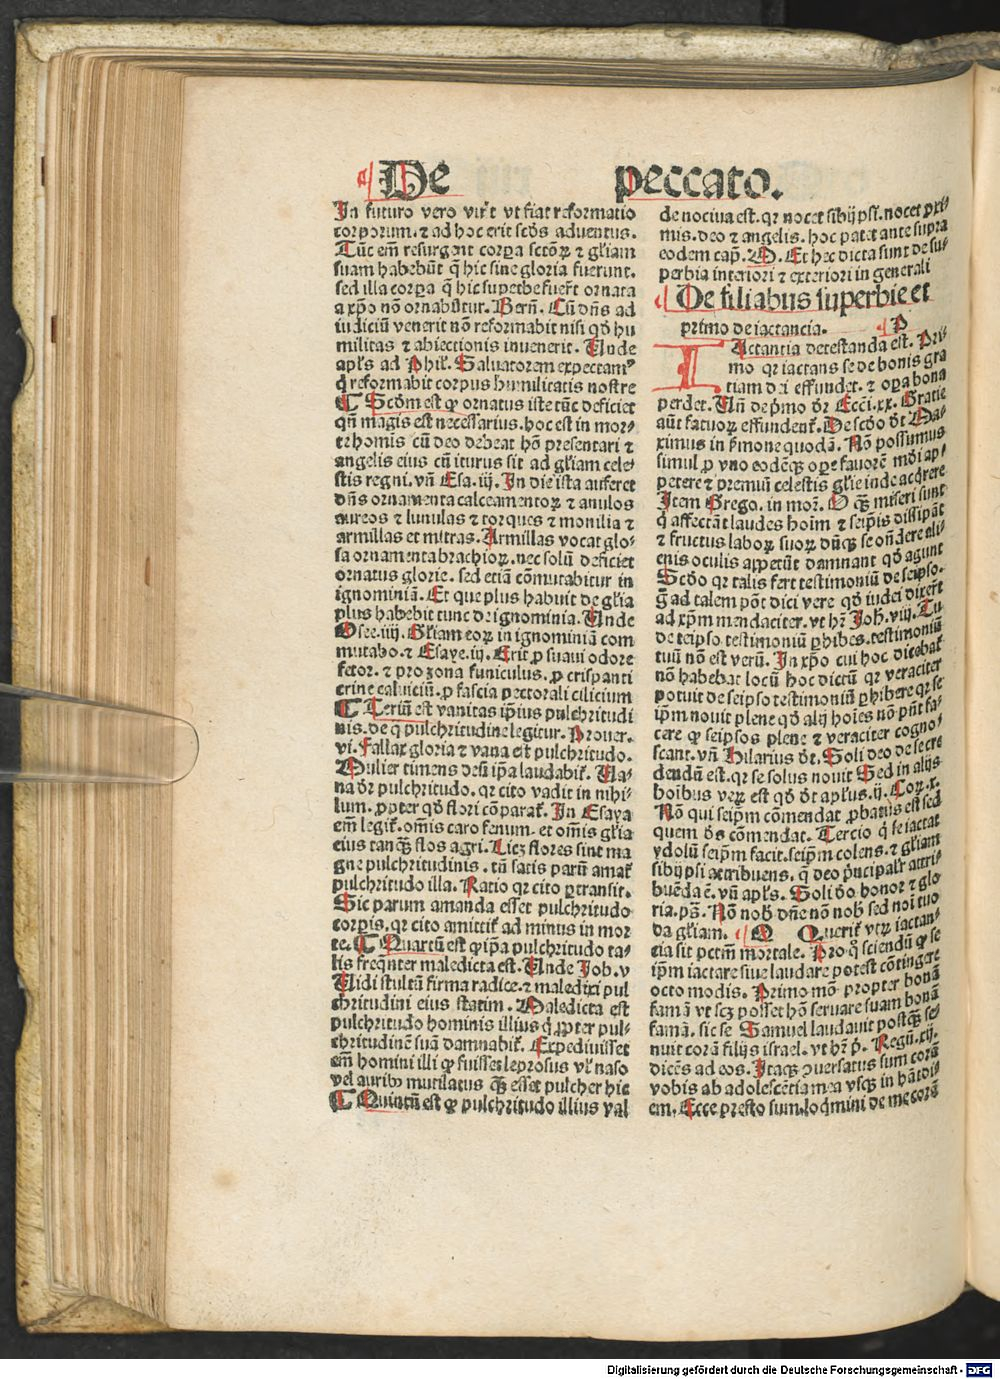 De peccato.
In futuro vero vir't vt fiat reformatio
corporum. ⁊ ad hoc erit scd̄s aduentus.
Tūc em̄ resurgent corꝑa sctōꝝ ⁊ gl̄iam
suam habebūt q̄ hic sine gloria fuerunt.
sed illa corꝑa q̄ hic supetbe fuer̄t ornata
a xp̄o nō ornabūtur. Bern̄. Cū dn̄s ad
iudiciū venerit nō reformabit nisi qd̄ hu
militas ⁊ abiectionis inuenerit. Unde
apl̄s ad Phil̄. Saluatorem expectamꝰ
q̄ reformabit corpus humilitatis nostre
¶ Scd̄m est ꝙ ornatus iste tūc deficiet
qn̄ magis est necessarius. hoc est in mor-
te homis cū deo debeat hō presentari ⁊
angelis eius cū iturus sit ad gl̄iam cele-
stis regni. vn̄ Esa. iij. In die ista auferet
dn̄s ornamenta calceamentoꝝ ⁊ anulos
aureos ⁊ lunulas ⁊ torques ⁊ monilia ⁊
armillas et mitras. Armillas vocat glo-
sa ornamenta brachioꝝ. nec solū deficiet
ornatus glorie. sed etiā cōmutabitur in
ignominiā. Et que plus habuit de gl̄ia
plus habebit tunc de ignominia. Unde
Osee. iiij. Gl̄iam eoꝝ in ignominiā com
mutabo. ⁊ Esaye. iij. Erit ꝓ suaui odore
fetor. ⁊ pro zona funiculus. ꝓ crispanti
crine caluiciū. ꝓ fascia pectorali cilicium
¶ Terciū est vanitas ip̄ius pulchritudi
nis. de q̄ pulchritudine legitur. Prouer.
vi. Fallax gloria ⁊ vana est pulchritudo.
Mulier timens deū ip̄a laudabit̄. Va-
na dr̄ pulchritudo. qr cito vadit in nihi-
lum. ꝓpter qd̄ flori cōparat̄. In Esaya
em̄ legit̄. omīs caro fenum. et omīs gl̄ia
eius tanqꝫ flos agri. Licꝫ flores sint ma
gne pulchritudinis. tn̄ satis parū amat̄
pulchritudo illa. Ratio qr cito ꝑtransit.
Sic parum amanda esset pulchritudo
corpis. qr cito amittit̄ ad minus in mor
te. ¶ Quartū est ꝙ ip̄a pulchritudo ta-
lis freqnter maledicta est. Unde Job. v
Vidi stultū firma radice. ⁊ maledixi pul
chritudini eius statim. Maledicta est
pulchritudo hominis illius q̄ ꝓpter pul-
chritudinē suā damnabit̄. Expediuisset
em̄ homini illi ꝙ fuisset leprosus vl̄ naso
vel auribꝰ mutilatus qꝫ esset pulcher hic
¶ Quintū est ꝙ pulchritudo illius val
de nociua est. qr nocet sibijpsi. nocet ꝓxi-
mis. deo ⁊ angelis. hoc patet ante supra
eodem cap̄. M. Et hec dicta sunt de su-
perbia interiori ⁊ exteriori in generali
De filiabus superbie et
primo de iactancia. P
Iactantia detestanda est. Pri-
mo qr iactans se de bonis gra
tiam dei effundet. ⁊ oꝑa bona
perdet. Un̄ de pm̄o dr̄ Ecci. xx. Gratie
aūt fatuoꝝ effundent̄. De scdo dr̄t Ma-
ximus in s̄mone quodā. Nō possumus
simul ꝓ vno eodēqꝫ oꝑe fauorē mūdi ap-
petere ⁊ premiū celestis gl̄ie inde acq̄rere
Item Grego. in mor̄. O qꝫ miseri sunt
q̄ affectāt laudes hoīm ⁊ seip̄is dissipāt
⁊ fructus laboꝝ suoꝝ dūqꝫ se on̄dere ali-
enis oculis appetūt damnant qd̄ agunt
Scd̄o qr talis fert testimoniū de seipso.
g̊ ad talem pōt dici vere qd̄ iudei dixer̄t
ad xp̄m mendaciter. vt hr̄ Joh̄. viij. Tu
de teipso testimoniū ꝑhibes. testimoniū
tuū nō est verū. In xp̄o cui hoc dicebat̄
nō habebat locū hoc dictū qr veraciter
potuit de seipso testimoniū ꝑhibere qr se
ip̄m nouit plene qd̄ alij hoīes nō pn̄t fa-
cere ꝙ seipsos plene ⁊ veraciter cogno-
scant. vn̄ Hilarius dr̄t. Soli deo de se cre
dendū est. qr se solus nouit Sed in alijs
hoībus veꝝ est qd̄ dr̄t apl̄us. ij. Coꝝ. x.
Nō qui seip̄m cōmendat ꝓbatus est sed
quem ds̄ cōmendat. Tercio q̄ se iactat
ydolū seip̄m facit. seip̄m colens. ⁊ gl̄iam
sibijpsi attribuens. q̄ deo p̄ncipalr̄ attri-
buēda ē. vn̄ apl̄s. Soli deo honor ⁊ glo
ria. ps̄. Nō nob̄ dn̄e nō nob̄ sed noī tuo
da gl̄iam. Q Querit̄ vtꝝ iactan-
cia sit pctm̄ mortale. Pro q̊ sciendū ꝙ se
ip̄m iactare siue laudare potest cōtingere
octo modis. Primo mō propter bonā
famā vt scꝫ posset hō seruare suam bonā
famā. sic se Samuel laudauit postqꝫ se-
nuit corā filijs israel. vt hr̄ p̄. Regū. xij.
dicēs ad eos. Itaqꝫ ꝯuersatus sum corā
vobis ab adolescētia mea vsqꝫ in hāc di-
em. Ecce presto sum. loq̄mini de me corā
Digitalisierung gefördert durch die Deutsche Forschungsgemeinschaft - DFG